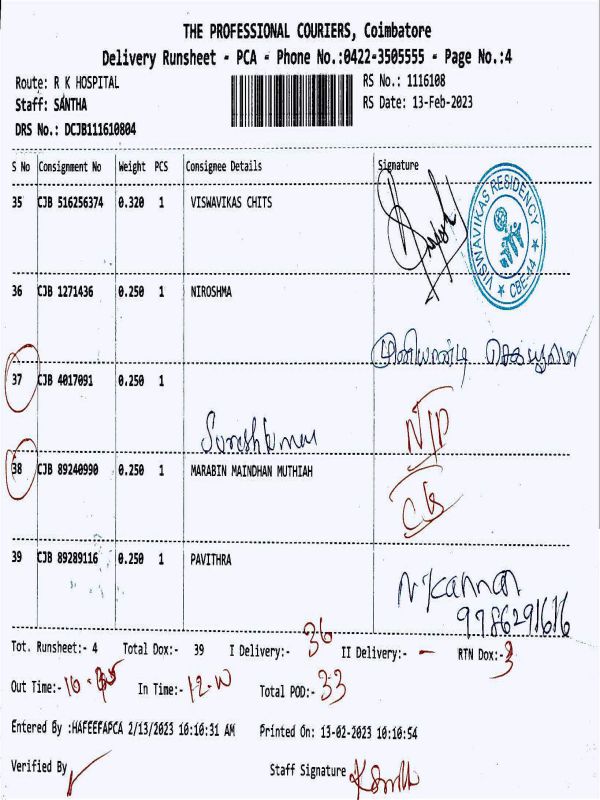 THE PROFESSIONAL COURIERS, Coimbatore
Delivery Runsheet - PCA - Phone No.:0422-3505555 - Page No.:4
Route: R K HOSPITAL
RS No.: 1116108
Staff: SANTHA
RS Date: 13-Feb-2023
DRS No.: DCJB111610804
S No Consignment No Weight PCS Consignee Details Signature
35 CJB 516256374 0.320 1 VISWAVIKAS CHITS
VISWAVIKAS RESIDENCY
CBE-44
36 CJB 1271436 0.250 1 NIROSHMA
முனியாண்டி
37 CJB 4017091 0.250 1
Sureshkumar
N/P
38 CJB 89240990 0.250 1 MARABIN MAINDHAN MUTHIAH
39 CJB 89289116 0.250 1 PAVITHRA
N Kannan
9786291616
Tot. Runsheet:- 4 Total Dox:- 39 I Delivery:- 36 II Delivery:- - RTN Dox:- 3
Out Time:- 10 In Time:- 12 Total POD:- 33
Entered By :HAFEEFAPCA 2/13/2023 10:10:31 AM Printed On: 13-02-2023 10:10:54
Verified By
Staff Signature